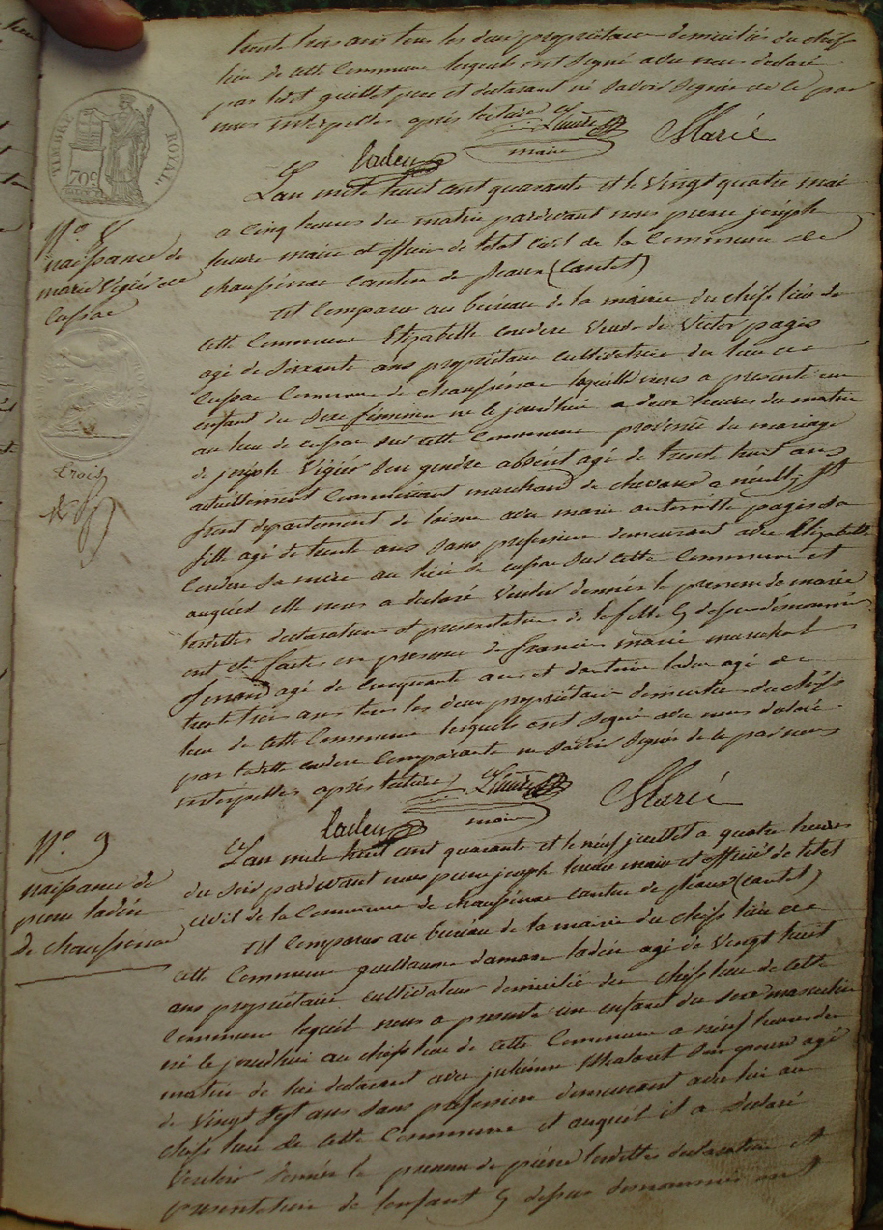 trente trois ans tous les deux propriétaire domiciliés du cheif
lieu de cette Commune lequels ont signé avec nous declaré
par ledit guillet pere et declarant ne savoir signér de ce par
nous interpellés aprés lecture
Marié
ladeu
maire
TIMBRE ROYAL
70c
Lan mile huit cent quarante et le vingt quatre mai
a cinq heures du matin pardevant nous pierre joséph
maire et officier de létat civil de la Commune de
chaussénac canton de pleaux (Cantal)
N.o 8
naissance de
marie Vigiér de
Cussac
Est Comparue au bureau de la mairie du cheif lieu de
cette Commune Elizabette coudere Veuve de Victor pagés
agé de soixante ans propriétaire cultivatrice du lieu de
Cussac Commune de chaussénac laquelle nous a presenté un
enfant du sexe féminin né le jourdhui a deux heures du matin
au lieu de cussac sur cette Commune provenu du mariage
de joséph Vigiér son gendre absent agé de trente huit ans
actuellement Commercant marchand de chevaux a neuilly St
front département de laisne avec marie antoinette pagés sa
fille agé de trente ans sans profession demeurant avec Elizabette
Coudere sa mére au lieu de cussac sur cette Commune et
auquél elle nous a declaré vouloir donnér le prenom de marie
lesdittes declaration et presentation de la fille cy dessus dénommée
ont été faites en presence de francois marié marechal
ferrand agé de cinquante ans et dantoine ladeu agé de
trente trois ans tous les deux propriétaire domiciliés du cheif
lieu de cette Commune lesquels ont signé avec nous declaré
par laditte coudere Comparante ne savoir signér de ce par nous
interpellés aprés lecture
trois
Marié
ladeu
maire
N.o 9
naissance de
pierre ladeu
de chaussénac
Lan mile huit cent quarante et le neuf juillet a quatre heures
du soir pardevant nous pierre joséph maire et officiér de létat
civil de la Commune de chaussénac canton de pleaux (cantal)
Est Comparu au bureau de la mairie du cheif lieu de
cette Commune guillaume damase ladeu agé de vingt huit
ans propriétaire cultivateur domicilié du cheif lieu de cette
Commune lequél nous a presenté un enfant du sexe masculin
né le jourdhui au cheif lieu de cette Commune a neuf heures du
matin de lui declarant avec julienne son epouse agé
de vingt sept ans sans profession demeurant avec lui au
cheif lieu de cette Commune et auquél il a declaré
vouloir donnér le prenom de piérre lesdittes declaration et
presentation de lenfant cy dessus denommé ont